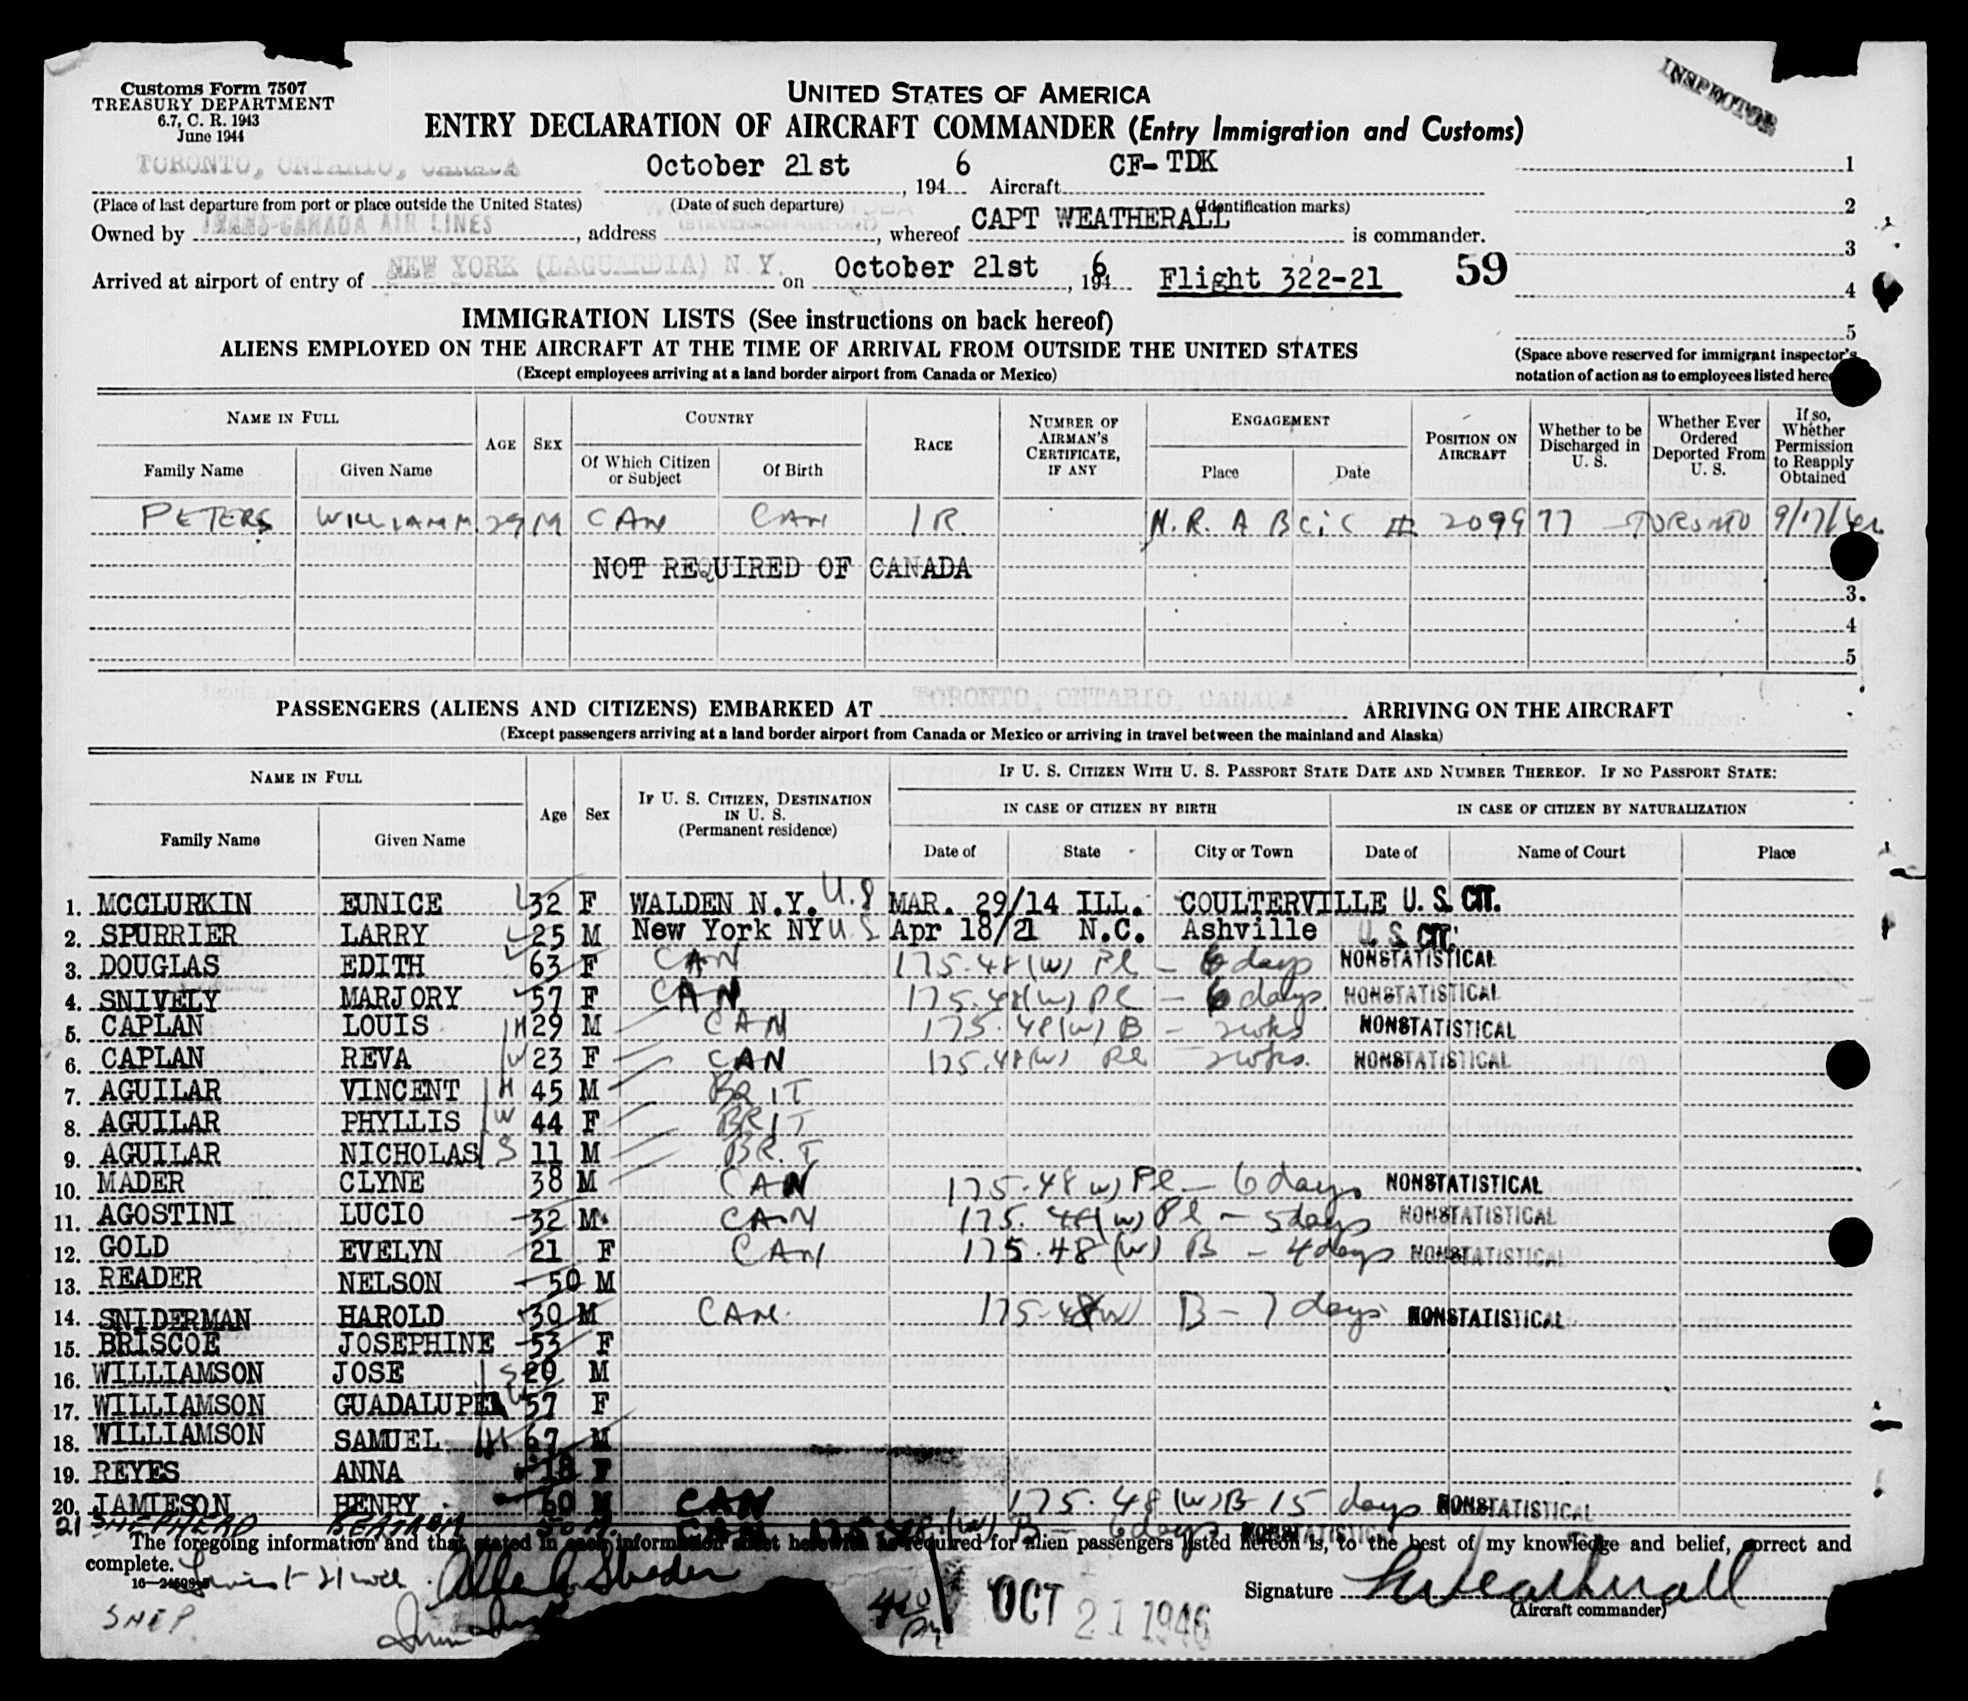 Customs Form 7507
TREASURY DEPARTMENT
6.7, C. R. 1943
June 1944
UNITED STATES OF AMERICA
ENTRY DECLARATION OF AIRCRAFT COMMANDER (Entry Immigration and Customs)
INSPECTOR
TORONTO, ONTARIO, CANADA October 21st, 1946 Aircraft CF-TDK 1
(Place of last departure from port or place outside the United States) (Date of such departure) (Identification marks) 2
Owned by TRANS-CANADA AIR LINES, address , whereof CAPT WEATHERALL is commander. 3
Arrived at airport of entry of NEW YORK (LAGUARDIA) N.Y. on October 21st, 1946 Flight 322-21 59 4
5
IMMIGRATION LISTS (See instructions on back hereof)
ALIENS EMPLOYED ON THE AIRCRAFT AT THE TIME OF ARRIVAL FROM OUTSIDE THE UNITED STATES
(Except employees arriving at a land border airport from Canada or Mexico)
(Space above reserved for immigrant inspector's
notation of action as to employees listed here
NAME IN FULL AGE SEX COUNTRY RACE NUMBER OF AIRMAN'S CERTIFICATE, IF ANY ENGAGEMENT POSITION ON AIRCRAFT Whether to be Discharged in U. S. Whether Ever Ordered Deported From U. S. If so, Whether Permission to Reapply Obtained
Family Name Given Name Of Which Citizen or Subject Of Birth Place Date
PETERS WILLIAM M 29 M CAN CAN IR N.R. A B CiC # 209977 TORONTO 9/17/46
NOT REQUIRED OF CANADA
3.
4
5
PASSENGERS (ALIENS AND CITIZENS) EMBARKED AT TORONTO, ONTARIO, CANADA ARRIVING ON THE AIRCRAFT
(Except passengers arriving at a land border airport from Canada or Mexico or arriving in travel between the mainland and Alaska)
NAME IN FULL Age Sex IF U. S. CITIZEN, DESTINATION IN U. S. (Permanent residence) IF U. S. CITIZEN WITH U. S. PASSPORT STATE DATE AND NUMBER THEREOF. IF NO PASSPORT STATE:
IN CASE OF CITIZEN BY BIRTH IN CASE OF CITIZEN BY NATURALIZATION
Family Name Given Name Date of State City or Town Date of Name of Court Place
1. MCCLURKIN EUNICE 32 F WALDEN N.Y. U.S MAR. 29/14 ILL. COULTERVILLE U. S. CIT.
2. SPURRIER LARRY 25 M New York NY U S Apr 18/21 N.C. Ashville U. S. CIT.
3. DOUGLAS EDITH 63 F CAN 175.48(W) Pl - 6 days NONSTATISTICAL
4. SNIVELY MARJORY 57 F CAN 175.48(W) Pl - 6 days NONSTATISTICAL
5. CAPLAN LOUIS H 29 M CAN 175.48(W) B - 2 wks NONSTATISTICAL
6. CAPLAN REVA W 23 F CAN 175.48(W) Pl - 2 wks. NONSTATISTICAL
7. AGUILAR VINCENT H 45 M BRIT
8. AGUILAR PHYLLIS W 44 F BRIT
9. AGUILAR NICHOLAS S 11 M BRIT
10. MADER CLYNE 38 M CAN 175.48 W) Pl - 6 days NONSTATISTICAL
11. AGOSTINI LUCIO 32 M. CAN 175.48(W) Pl - 5 days NONSTATISTICAL
12. GOLD EVELYN 21 F CAN 175.48 (W) B - 4 days NONSTATISTICAL
13. READER NELSON 50 M
14. SNIDERMAN HAROLD 30 M CAN. 175.48 W B - 7 days NONSTATISTICAL
15. BRISCOE JOSEPHINE 53 F
16. WILLIAMSON JOSE S 29 M
17. WILLIAMSON GUADALUPE W 57 F
18. WILLIAMSON SAMUEL H 67 M
19. REYES ANNA 18 F
20. JAMIESON HENRY 60 M CAN 175.48 (W) B - 15 days NONSTATISTICAL
21 SHEPHERD M. CAN 175.48 (W) B - 6 days NONSTATISTICAL
The foregoing information and that stated in each information sheet herewith as required for alien passengers listed hereon is, to the best of my knowledge and belief, correct and
complete.
Signature
(Aircraft commander)
OCT 21 1946